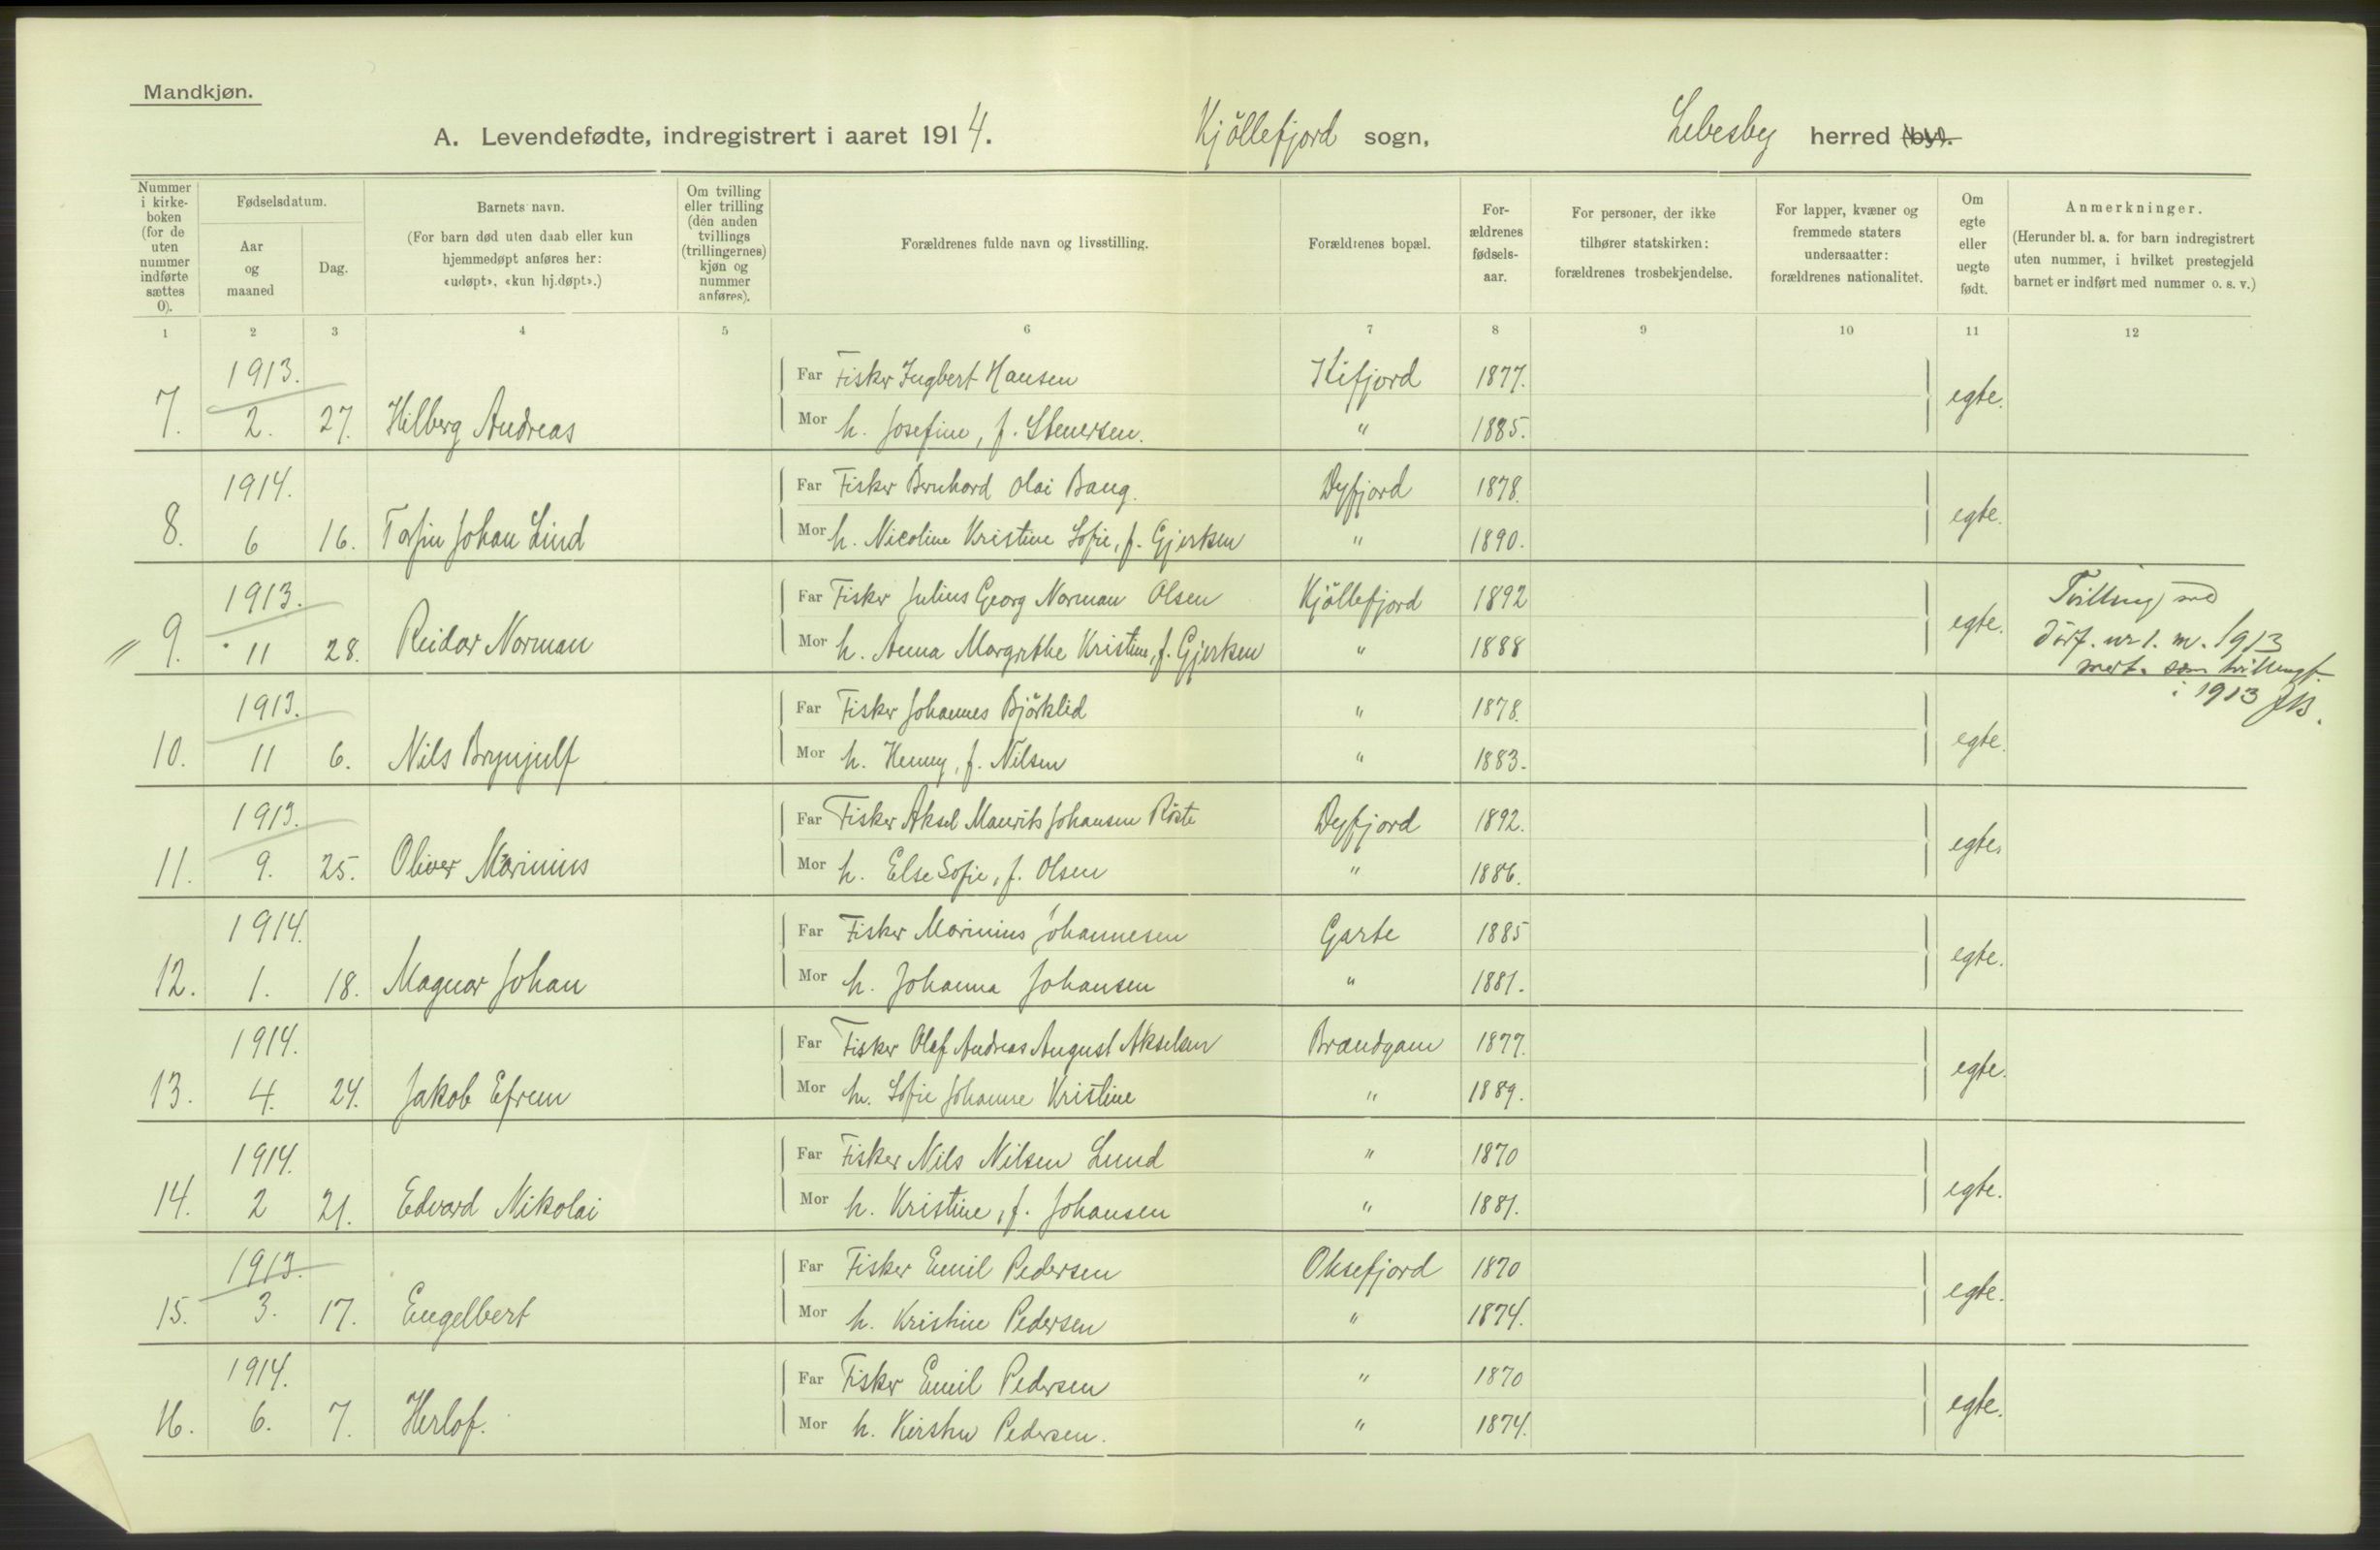 Mandkjøn.
A. Levendefødte, indregistrert i aaret 1914. Kjöllefjord sogn, Lebesby herred (by).
Nummer i kirke-boken (for de uten nummer indførte sættes 0).
Fødselsdatum.
Aar og maaned
Dag.
Barnets navn.
(For barn død uten daab eller kun hjemmedøpt anføres her: «udøpt», «kun hj.døpt».)
Om tvilling eller trilling (den anden tvillings (trillingernes) kjøn og nummer anføres).
Forældrenes fulde navn og livsstilling.
Forældrenes bopæl.
For-ældrenes fødsels-aar.
For personer, der ikke tilhører statskirken: forældrenes trosbekjendelse.
For lapper, kvæner og fremmede staters undersaatter: forældrenes nationalitet.
Om egte eller uegte født.
Anmerkninger.
(Herunder bl. a. for barn indregistrert uten nummer, i hvilket prestegjeld barnet er indført med nummer o. s. v.)
1 2 3 4 5 6 7 8 9 10 11 12
1913. Far Fisker Ingbert Hansen Kifjord 1877.
7. 2. 27. Hilberg Andreas Mor h. Josefine, f. Stenersen. " 1885. egte.
1914. Far Fisker Bernhard Olai Baug. Dyfjord 1878.
8. 6 16. Torfin Johan Lind Mor h. Nicoline Kristine Sofie, f. Gjertsen " 1890. egte.
1913. Far Fisker Julius Georg Norman Olsen Kjöllefjord 1892
" 9. 11 28. Reidar Norman Mor h. Anna Margrethe Kristine, f. Gjertsen " 1888 egte.
Tvilling med
dörf. nr 1. m. 1913
som
i 1913
1913. Far Fisker Johannes Björklid " 1878.
10. 11 6. Nils Brynjulf Mor h. Henny, f. Nilsen " 1883. egte.
1913. Far Fisker Aksel Maurits Johansen Röste Dyfjord 1892.
11. 9. 25. Oliver Marinius Mor h. Else Sofie, f. Olsen " 1886. egte.
1914. Far Fisker Marinius Johannesen Garte 1885
12. 1. 18. Magnar Johan Mor h. Johanna Johansen " 1881. egte.
1914. Far Fisker Olaf Andreas August Akselsen Brandgam 1877.
13. 4. 24. Jakob Efrem Mor h. Sofie Johanne Kristine " 1889. egte.
1914. Far Fisker Nils Nilsen Lund " 1870
14. 2 21. Edvard Nikolai Mor h. Kristine, f. Johansen " 1881. egte.
1913. Far Fisker Emil Pedersen Oksefjord 1870
15. 3. 17. Engelbert Mor h. Kristine Pedersen " 1874. egte.
1914. Far Fisker Emil Pedersen " 1870
16. 6. 7. Herlof. Mor h. Pedersen. " 1874. egte.